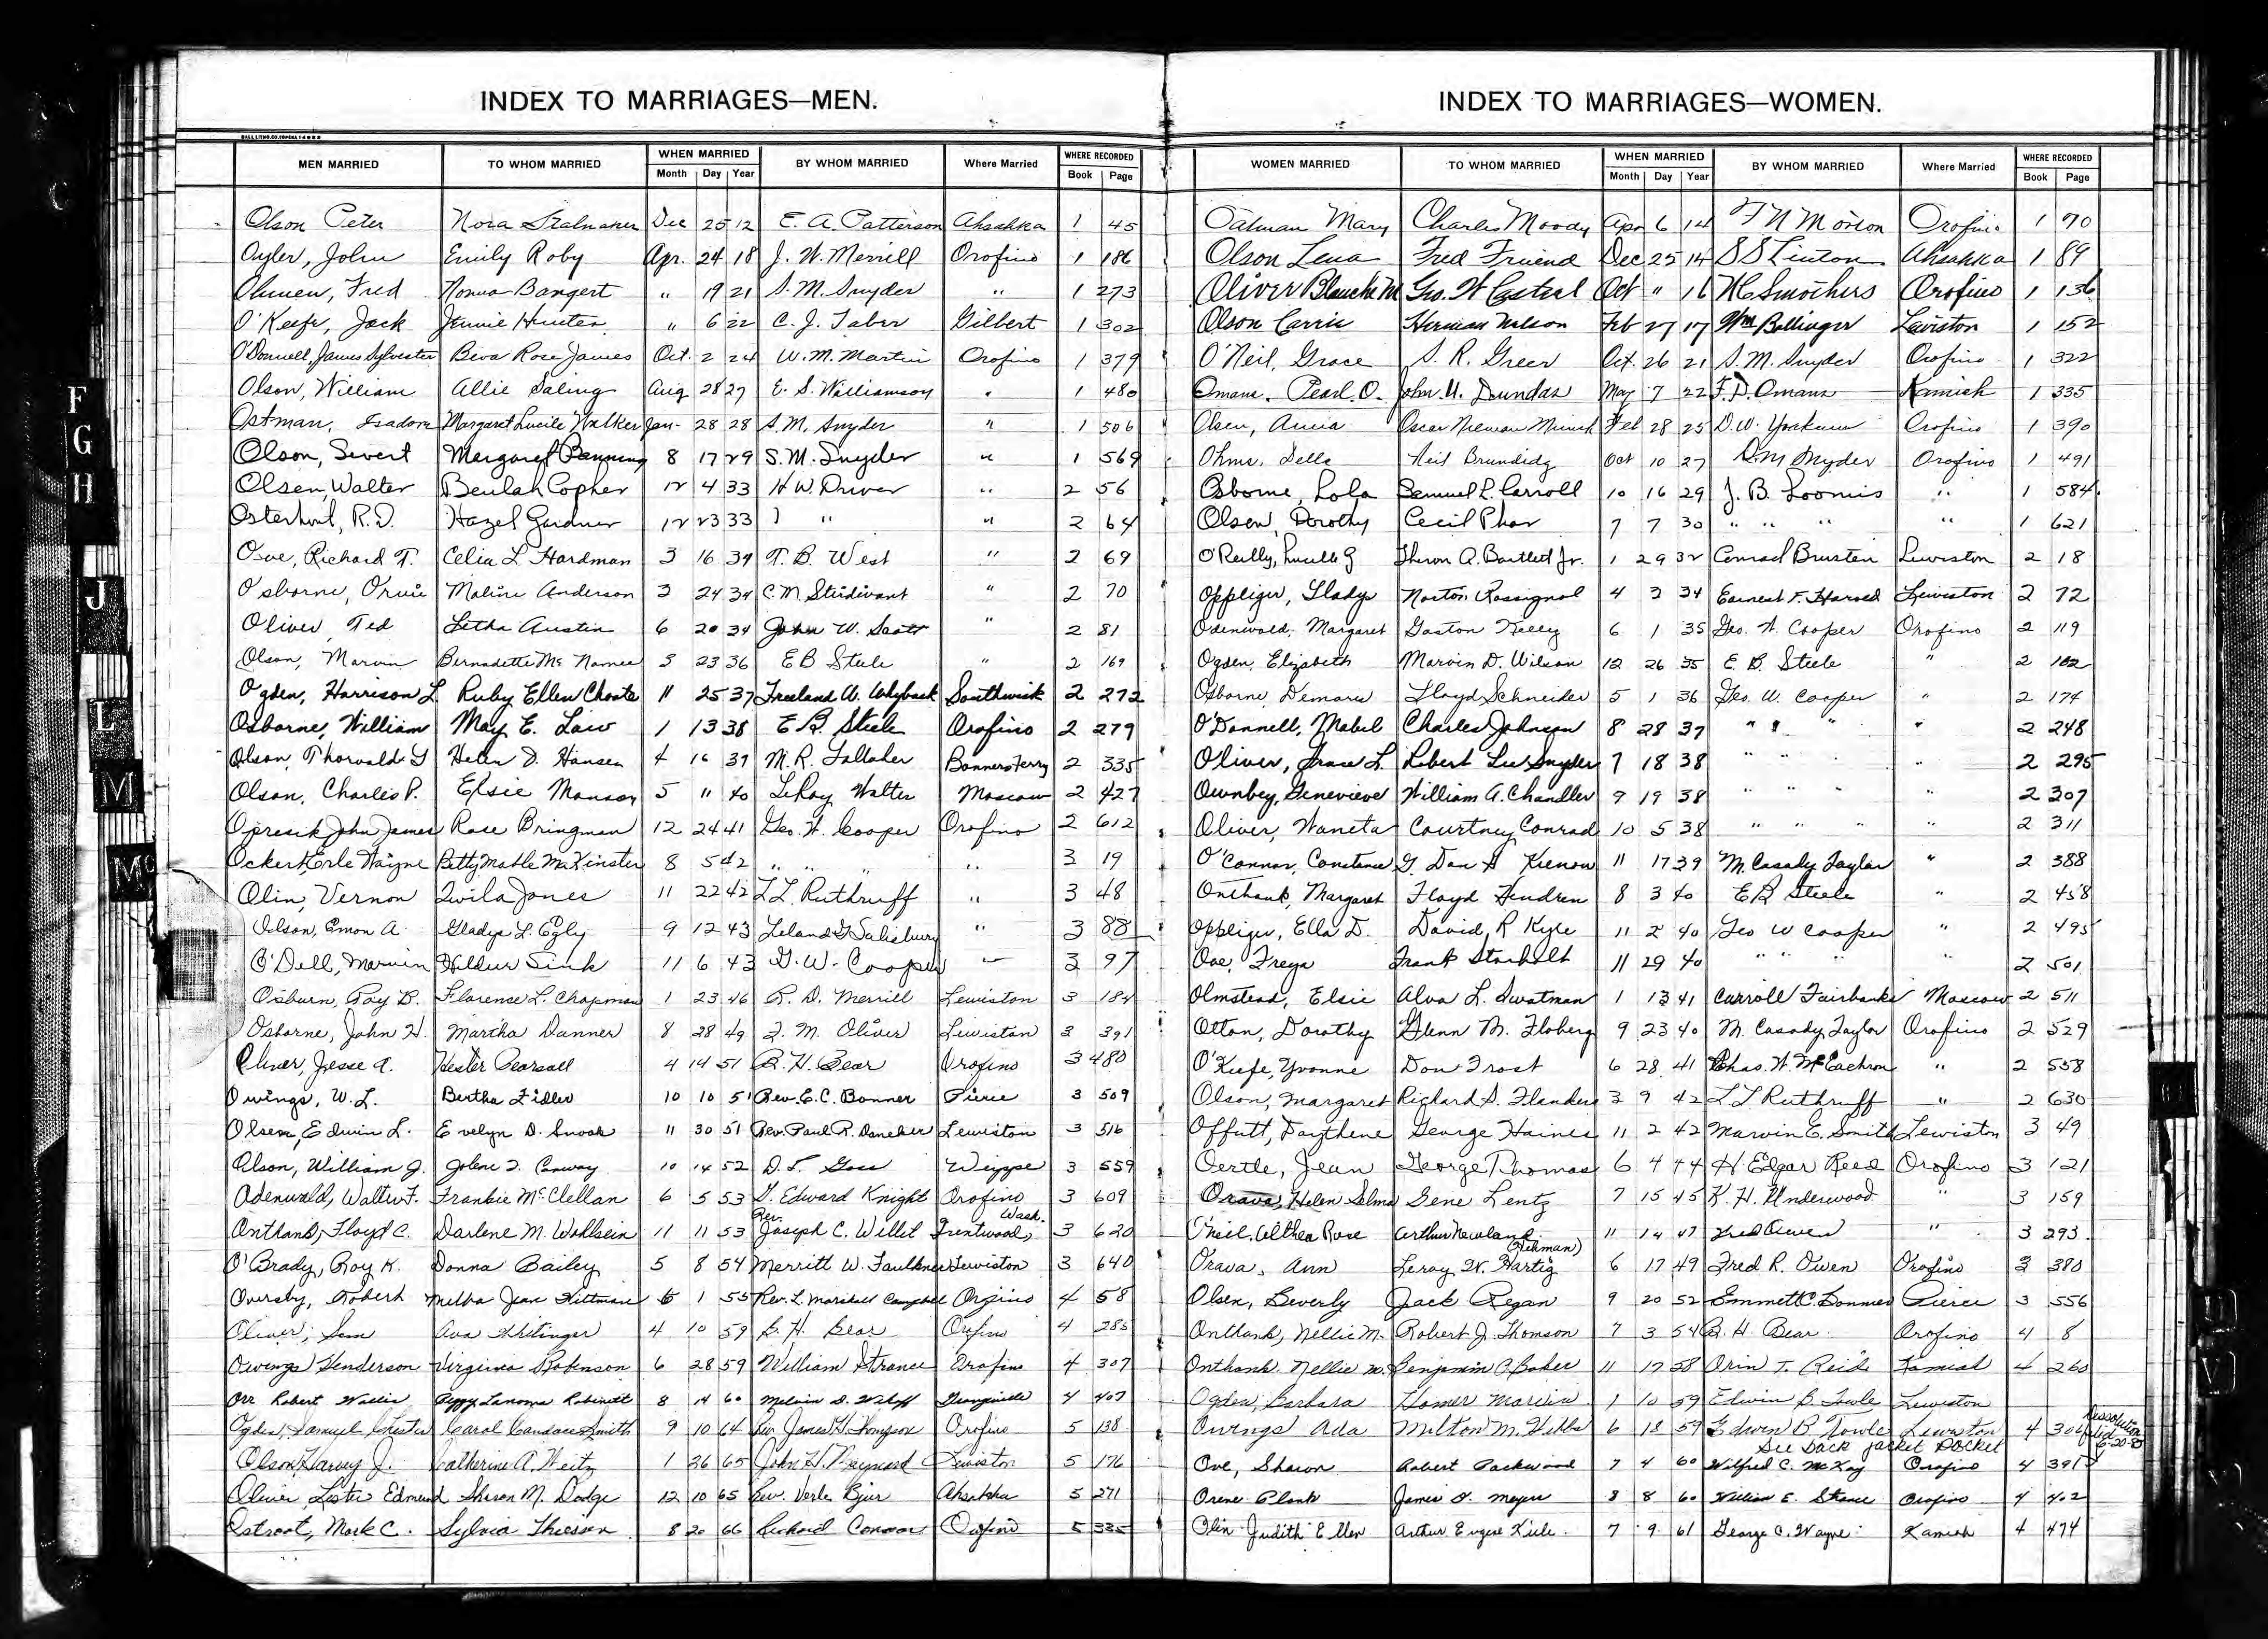 INDEX TO MARRIAGES—MEN.
MEN MARRIED TO WHOM MARRIED WHEN MARRIED Month Day Year BY WHOM MARRIED Where Married WHERE RECORDED Book Page
Olson Peter Nora Stalnaker Dec 25 12 E. A. Patterson Ahsahka 1 45
Oyler, John Emily Roby Apr. 24 18 J. W. Merrill Orofino 1 186
Fred Norma Bangert " 19 21 S. M. Snyder " 1 273
O'Keefe, Jack Jennie Hunter " 6 22 C. J. Taber Gilbert 1 302
O'Donnell, James Sylvester Beva Rose James Oct. 2 24 W. M. Martin Orofino 1 379
Olson, William Allie Saling Aug 28 27 E. S. Williamson " 1 480
Ostman, Isadore Margaret Lucile Walker Jan- 28 28 S. M. Snyder " 1 506
Olson, Sivert Margaret Banning 8 17 29 S. M. Snyder " 1 569
Olsen, Walter Beulah Copher 12 4 33 H W. Driver " 2 56
Osterhout, R. D. Hazel Gardner 12 23 33 " " 2 64
Richard T. Celia L Hardman 3 16 34 T. B. West " 2 69
Osborne, Orvie Maline Anderson 3 24 34 C. M. Sturdivant " 2 70
Oliver, Ted Letha Austin 6 20 34 John W. Scott " 2 81
Olson, Marvin Bernadette Mc Namee 3 23 36 E B Steele " 2 169
Ogden, Harrison L. Ruby Ellen Choate 11 25 37 Freeland W. Whyback Southwick 2 272
Osborne, William May E. Law 1 13 38 E. B. Steele Orofino 2 279
Olson, Thorvald G Helen D. Hansen 4 16 39 M. R. Gallaher Bonners Ferry 2 335
Olson, Charles P. Elsie Monson 5 11 40 LeRoy Walter Moscow 2 427
Opresik John James Rose Bringman 12 24 41 Geo. W. Cooper Orofino 2 612
Ockert, Erle Wayne Betty Mable McKinster 8 5 42 " " " " 3 19
Olin, Vernon Twila Jones 11 22 42 L L Ruthruff " 3 48
Olson, Emon A. Gladys L. Egly 9 12 43 Leland G Salisbury " 3 88
O'Dell, Marvin Hildur Sink 11 6 43 G. W. Cooper " 3 97
Osburn, Roy B. Florence L. Chapman 1 23 46 R. D. Merrill Lewiston 3 184
Osborne, John H. Martha Danner 8 28 49 Z. M. Oliver Lewiston 3 391
Oliver, Jesse A. Hester Pearsall 4 14 51 B. H. Bear Orofino 3 480
Owings, W. L. Bertha Fidler 10 10 51 Rev. E. C. Bonner Pierce 3 509
Olsen, Edwin L. Evelyn D. Snook 11 30 51 Rev. Paul R. Daneker Lewiston 3 516
Olson, William J. Jolene I. Conway 10 14 52 D. F. Goss Weippe 3 559
Odenwald, Walter F. Frankie McClellan 6 5 53 G. Edward Knight Orofino 3 609
Onthank, Floyd C. Darlene M. Wohlsein 11 11 53 Rev. Joseph C. Willit Trentwood, Wash. 3 620
O'Brady, Roy K. Donna Bailey 5 8 54 Merritt W. Faulkner Lewiston 3 640
Oversby, Robert Melba Jean Hittman 6 1 55 Rev. L. Marshall Campbell Orofino 4 58
Oliver, Sam Ava Whitinger 4 10 59 B. H. Bear Orofino 4 285
Owings Henderson Virginia Robinson 6 28 59 William Strance Orofino 4 307
Orr Robert Wallis Peggy Lanoma Robinett 8 14 60 Melvin D. Grangeville 4 407
Ogden, Samuel Chester Carol Candace Smith 9 10 64 Rev. James H. Thompson Orofino 5 138
Olson Harvey J. Catherine A. Weitz 1 26 65 John H. Maynard Lewiston 5 176
Oliver, Lester Edmund Sharon M. Dodge 12 10 65 Rev. Verle Ahsahka 5 271
Ostroot, Mark C. Sylvia Thiessen 8 20 66 Richard Connor Orofino 5 335
INDEX TO MARRIAGES—WOMEN.
WOMEN MARRIED TO WHOM MARRIED WHEN MARRIED Month Day Year BY WHOM MARRIED Where Married WHERE RECORDED Book Page
Oatman Mary Charles Moody Apr 6 14 F N Morton Orofino 1 70
Olson Lena Fred Friend Dec 25 14 S S Linton Ahsahka 1 89
Oliver Blanche M Geo. W Castral Oct " 16 H C Smothers Orofino 1 136
Olson Carrie Herman Nelson Feb 27 17 Wm Bollinger Lewiston 1 152
O'Neil, Grace S. R. Greer Oct. 26 21 S. M. Snyder Orofino 1 322
Omans, Pearl O. John U. Dundas May 7 22 F. D. Omans Kamiah 1 335
Olsen, Anna Oscar Nieman Feb 28 25 D. W. Yoakum Orofino 1 390
Ohms, Della Neil Brundidg Oct 10 27 S. M. Snyder Orofino 1 491
Osborne, Lola Samuel L. Carroll 10 16 29 J. B. Loomis " 1 584
Olsen, Dorothy Cecil Phar 7 7 30 " " " " 1 621
O'Reilly, Lucille G Theron A. Bartlett Jr. 1 29 32 Conrad Brusten Lewiston 2 18
Oppliger, Gladys Norton Rossignol 4 3 34 Earnest F. Harold Lewiston 2 72
Odenwald, Margaret Gaston Kelly 6 1 35 Geo. W. Cooper Orofino 2 119
Ogden, Elizabeth Marvin D. Wilson 12 26 35 E. B. Steele " 2 162
Osborne, Demaris Lloyd Schneider 5 1 36 Geo. W. Cooper " 2 174
O'Donnell, Mabel Charles Johnson 8 28 37 " " " " 2 248
Oliver, Grace L. Robert Lee Snyder 7 18 38 " " " 2 295
Ownbey, Genevieve William A. Chandler 9 19 38 " " " " 2 307
Oliver, Waneta Courtney Conrad 10 5 38 " " " " 2 311
O'Connor, Constance G. Dan H Kienow 11 17 39 M. Casady Taylor " 2 388
Onthank, Margaret Floyd Hendren 8 3 40 E B Steele " 2 458
Oppliger, Ella D. David R Kyle 11 2 40 Geo W Cooper " 2 495
Ove, Freya Frank Starholt 11 29 40 " " " " 2 501
Olmstead, Elsie Alva L. Swatman 1 13 41 Carroll Fairbanks Moscow 2 511
Otton, Dorothy Glenn M. Floberg 9 23 40 M. Casady Taylor Orofino 2 529
O'Keefe, Yvonne Don Frost 6 28 41 Chas. W. McEachron " 2 558
Olson, Margaret Richard S. Flanders 3 9 42 L L Ruthruff " 2 630
Offutt, Faythene George Haines 11 2 42 Marvin E. Smith Lewiston 3 49
Oertle, Jean George Thomas 6 4 44 H Edgar Reed Orofino 3 121
Orava, Helen Selma Gene Lentz 7 15 45 K. H. Underwood " 3 159
O'Neil, Althea Rose Arthur Newland 11 14 47 Fred Owen " 3 293
Orava, Ann Leroy W. Hartig (Hikman) 6 17 49 Fred R. Owen Orofino 3 380
Olsen, Beverly Jack Regan 9 20 52 Emmett C. Bonner Pierce 3 556
Onthank, Nellie M. Robert J. Thomson 7 3 54 B. H. Bear Orofino 4 8
Onthank, Nellie M. Benjamin C. Baker 11 17 58 Orin T. Reid Kamiah 4 260
Ogden, Barbara Homer 1 10 59 Edwin B. Towle Lewiston
Owings Ada Milton M. Hibbs 6 18 59 Edwin B Towle Lewiston 4 306 Dissolution filed 6-20-85
See back jacket pocket
Ove, Sharon Robert Packwood 7 4 60 Wilfred C. McKay Orofino 4 391
Orene Plank James D. Meyer 8 8 60 William E. Strance Orofino 4 402
Olin Judith Ellen Arthur Eugene Kiele 7 9 61 George C. Wayne Kamiah 4 474
F
G
H
J
L
M
Mc